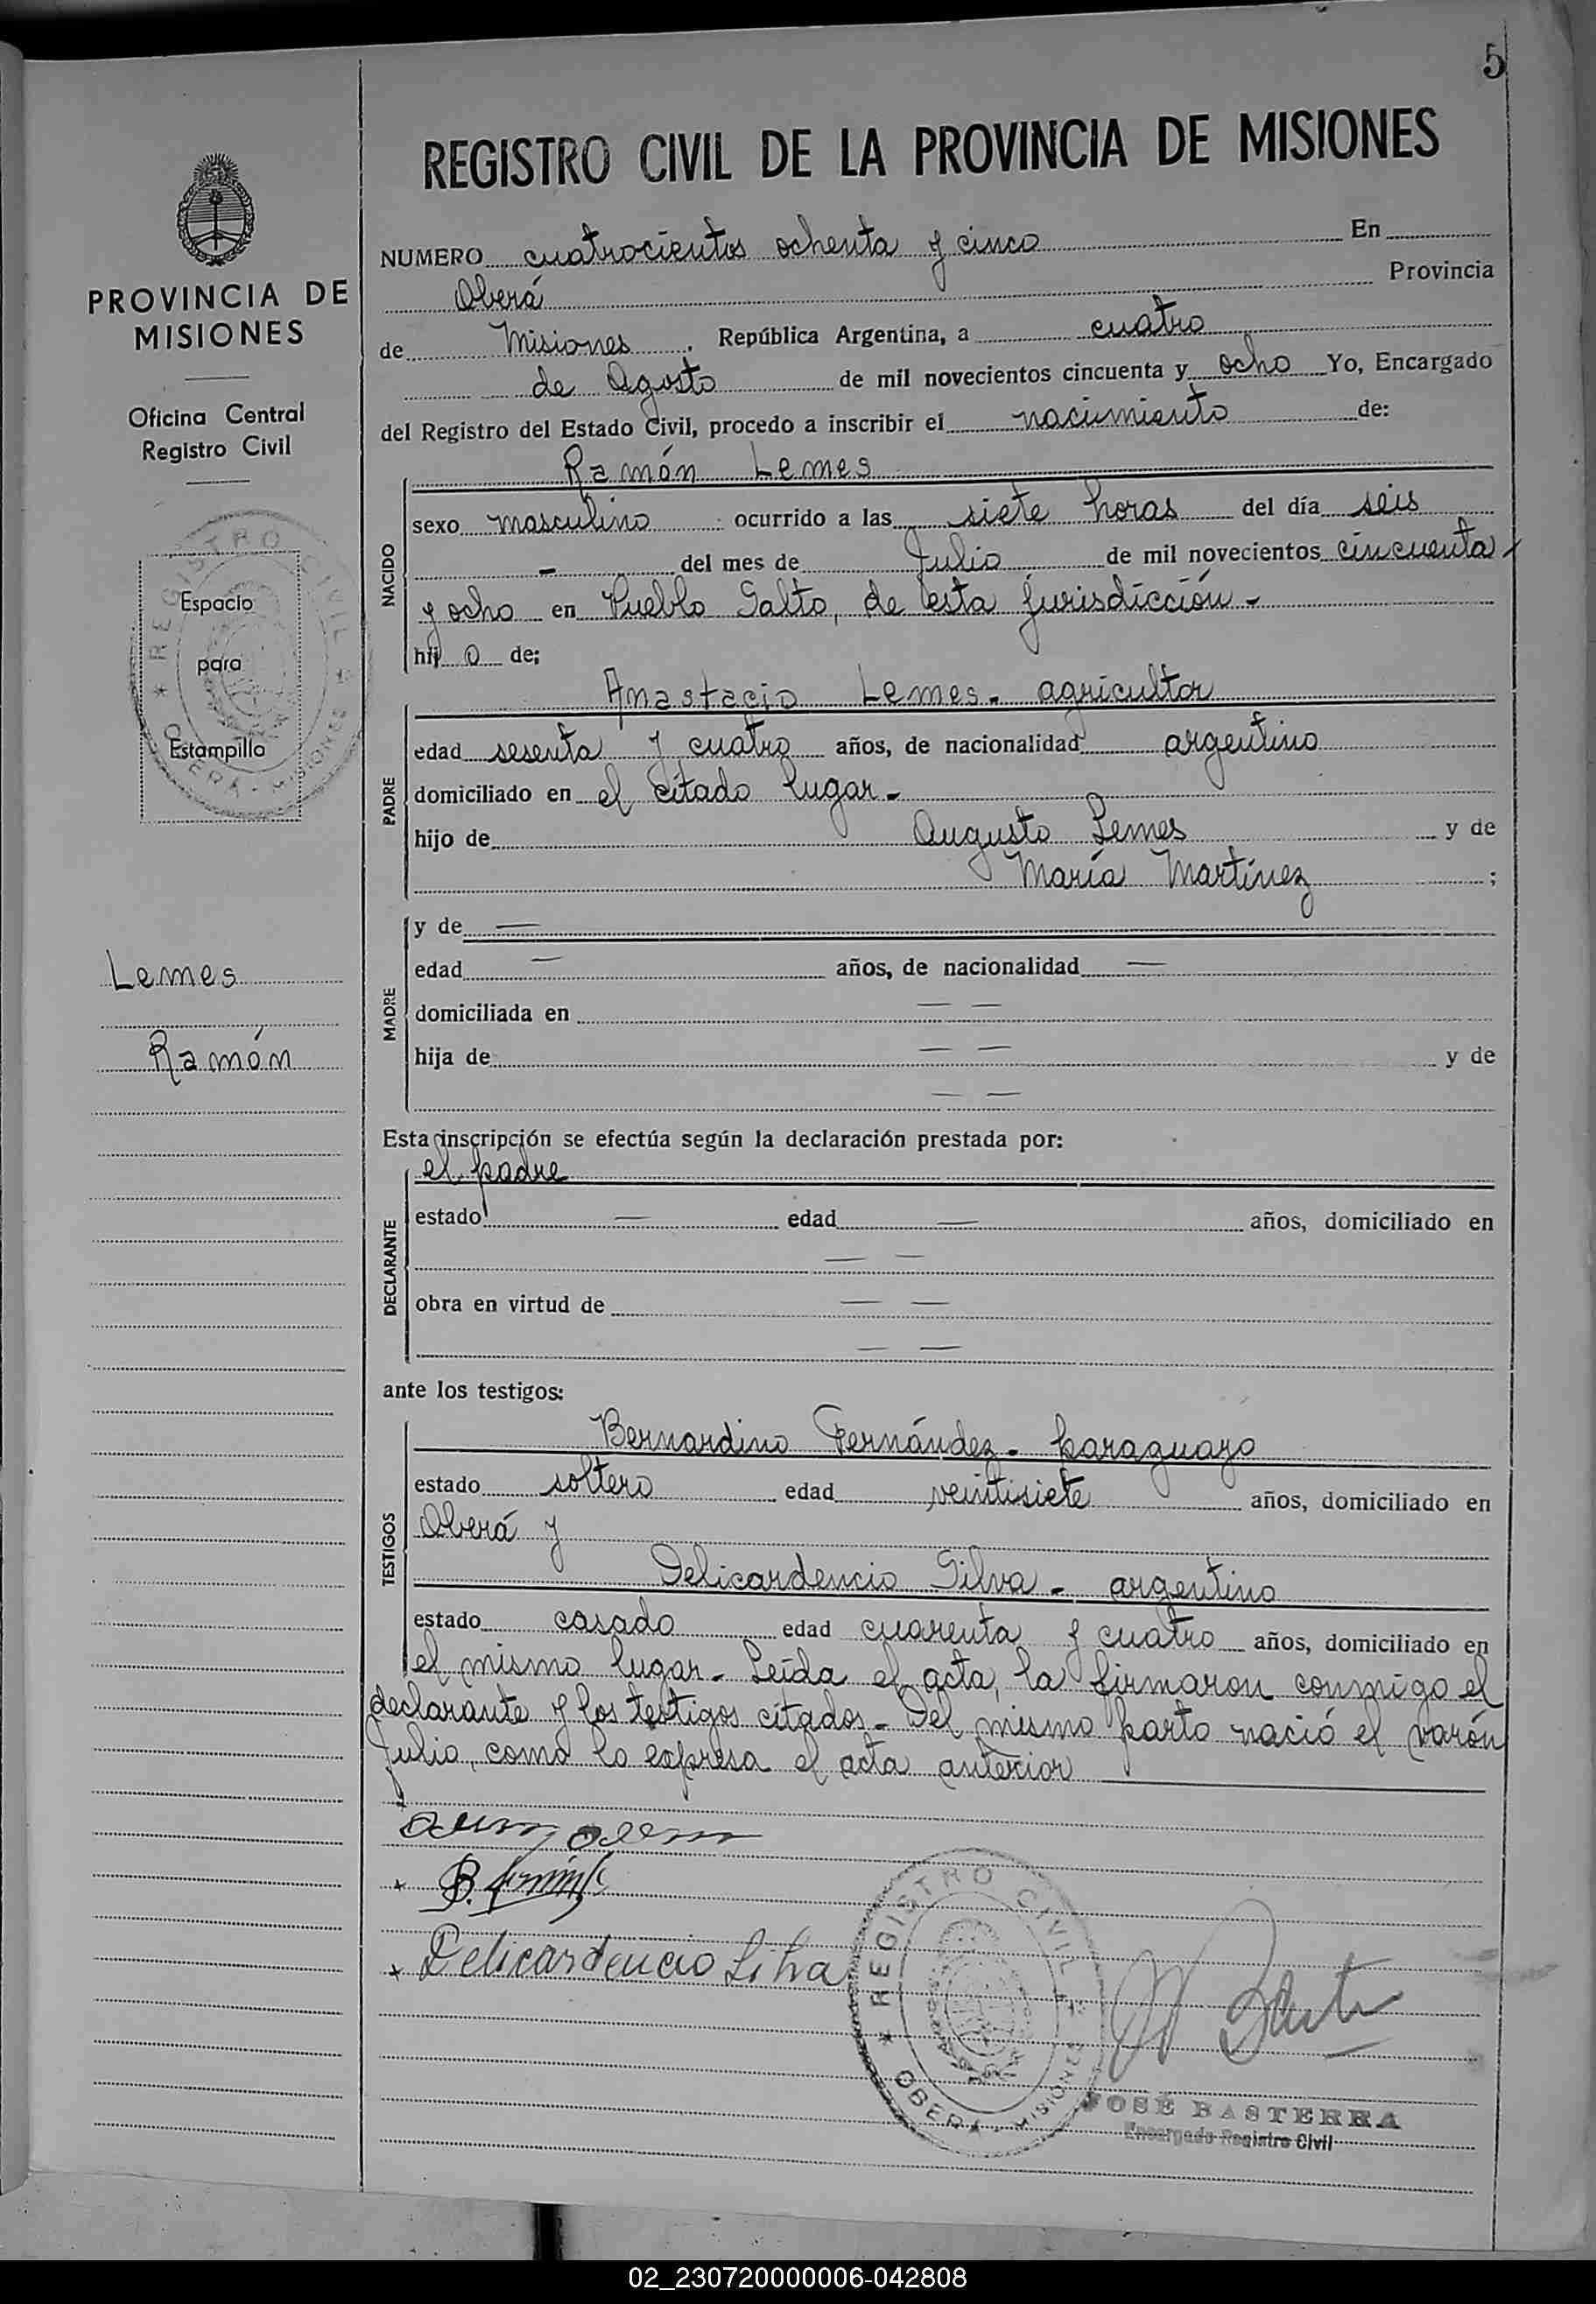 5
REGISTRO CIVIL DE LA PROVINCIA DE MISIONES
PROVINCIA DE
MISIONES
Oficina Central
Registro Civil
REGISTRO CIVIL
OBERÁ - MISIONES
Espacio
para
Estampilla
Lemes
Ramón
NUMERO cuatrocientos ochenta y cinco En
Oberá Provincia
de Misiones, República Argentina, a cuatro
de Agosto de mil novecientos cincuenta y ocho Yo, Encargado
del Registro del Estado Civil, procedo a inscribir el nacimiento de:
NACIDO
Ramón Lemes
sexo masculino ocurrido a las siete horas del día seis
- del mes de Julio de mil novecientos cincuenta
y ocho en Pueblo Salto, de esta jurisdicción -
hij o de;
PADRE
Anastacio Lemes - agricultor
edad sesenta y cuatro años, de nacionalidad argentino
domiciliado en el citado lugar -
hijo de Augusto Lemes y de
María Martínez ;
MADRE
y de —
edad — años, de nacionalidad —
domiciliada en — —
hija de — — y de
— —
Esta inscripción se efectúa según la declaración prestada por:
DECLARANTE
el padre
estado — edad — años, domiciliado en
— —
obra en virtud de — —
— —
ante los testigos:
TESTIGOS
Bernardino Fernández - paraguayo
estado soltero edad veintisiete años, domiciliado en
Oberá y
Delicardencio Silva - argentino
estado casado edad cuarenta y cuatro años, domiciliado en
el mismo lugar - Leída el acta, la firmaron conmigo el
declarante y los testigos citados - Del mismo parto nació el varón
Julio, como lo expresa el acta anterior
Delicardencio Silva
REGISTRO CIVIL
OBERÁ - MISIONES
JOSÉ BASTERRA
Encargado Registro Civil
02_230720000006-042808